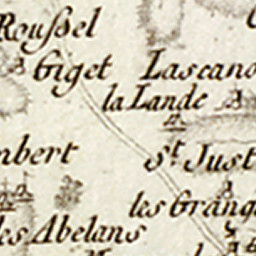 Roussel
Giget Lascano
la Lande
mbert St Just
les Grang
les Abelans